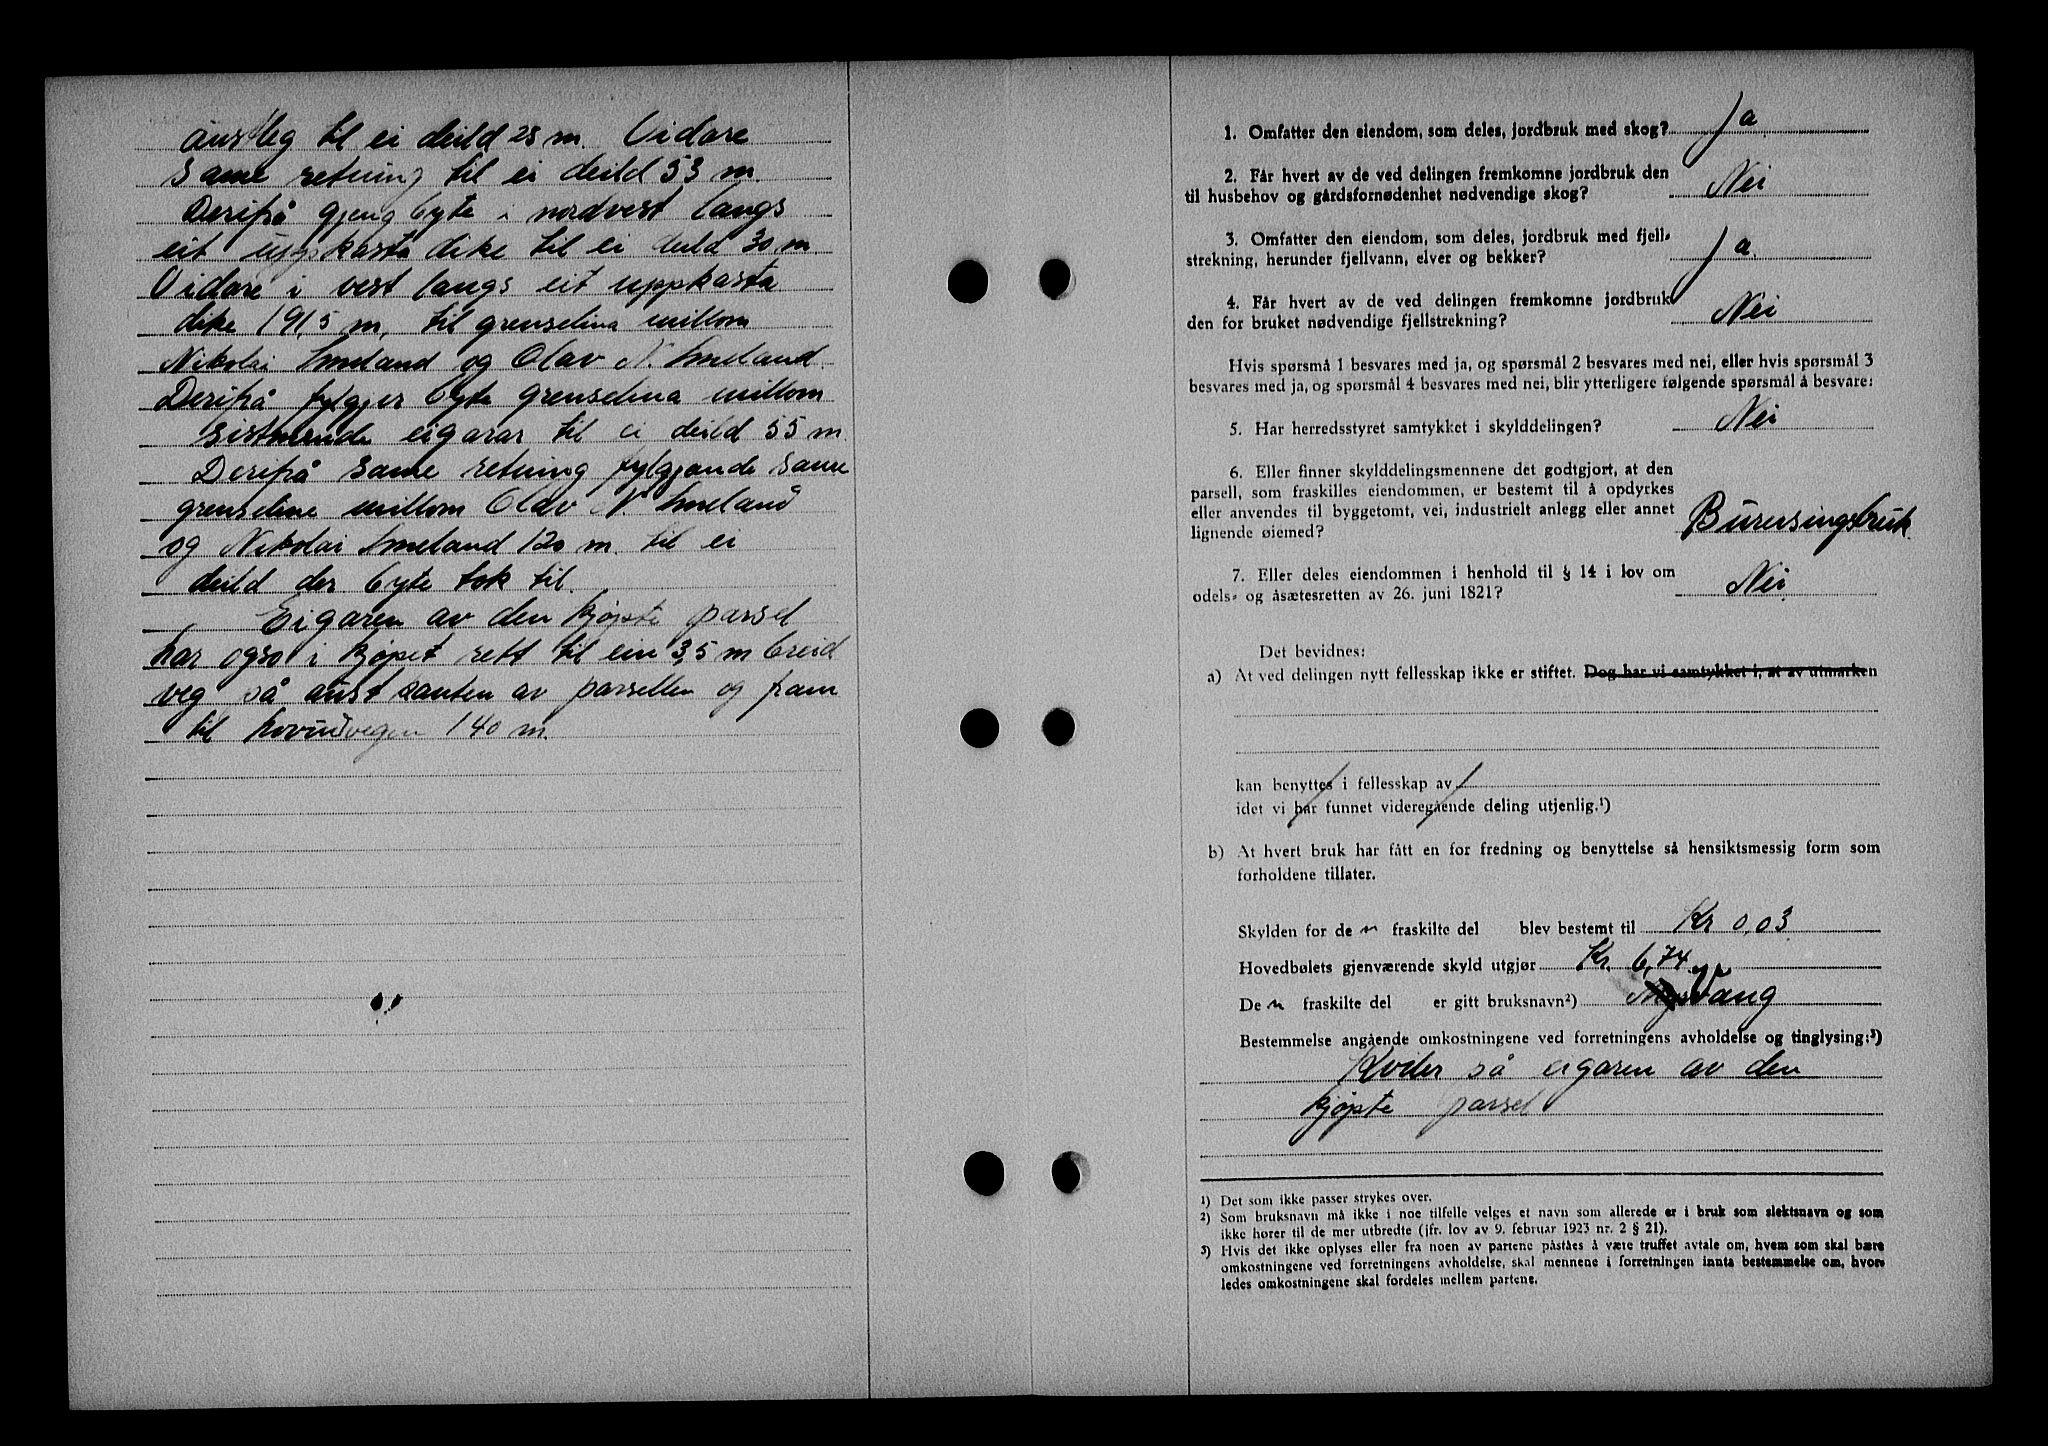 austleg til ei deild 28 m. Vidare
same retning til ei deild 53 m.
Derifrå gjeng byte i nordvest langs
eit uppkasta dike til ei deild 30 m.
Vidare i vest langs eit uppkasta
dike 191,5 m, til grenselina millom
Nikolai Smeland og Olav N. Smeland.
Derifrå fylgjer byte grenselina millom
sistnemde eigarar til ei deild 55 m.
Derifrå same retning fylgjande same
grenseline millom Olav N. Smeland
og Nikolai Smeland 120 m. til ei
deild der byte tok til.
Eigaren av den kjøpte parsel
har også i kjøpet rett til ein 3,5 m breid
veg så aust kanten av parsellen og fram
til hovudvegen 140 m.
1. Omfatter den eiendom, som deles, jordbruk med skog? Ja
2. Får hvert av de ved delingen fremkomne jordbruk den
til husbehov og gårdsfornødenhet nødvendige skog? Nei
3. Omfatter den eiendom, som deles, jordbruk med fjell-
strekning, herunder fjellvann, elver og bekker? Ja.
4. Får hvert av de ved delingen fremkomne jordbruk
den for bruket nødvendige fjellstrekning? Nei
Hvis spørsmå 1 besvares med ja, og spørsmål 2 besvares med nei, eller hvis spørsmål 3
besvares med ja, og spørsmål 4 besvares med nei, blir ytterligere følgende spørsmål å besvare:
5. Har herredsstyret samtykket i skylddelingen? Nei
6. Eller finner skylddelingsmennene det godtgjort, at den
parsell, som fraskilles eiendommen, er bestemt til å opdyrkes
eller anvendes til byggetomt, vei, industrielt anlegg eller annet
lignende øiemed? Bureisingsbruk.
7. Eller deles eiendommen i henhold til § 14 i lov om
odels- og åsætesretten av 26. juni 1821? Nei
Det bevidnes:
a) At ved delingen nytt fellesskap ikke er stiftet. Dog har vi samtykket i, at av utmarken
kan benyttes i fellesskap av
idet vi har funnet videregående deling utjenlig.¹)
b) At hvert bruk har fått en for fredning og benyttelse så hensiktsmessig form som
forholdene tillater.
Skylden for de n fraskilte del blev bestemt til Kr 0,03
Hovedbølets gjenværende skyld utgjør Kr. 6,74
De n fraskilte del er gitt bruksnavn²) Vang
Bestemmelse angående omkostningene ved forretningens avholdelse og tinglysing:³)
Kviler så eigaren av den
kjøpte parsel
¹) Det som ikke passer strykes over.
²) Som bruksnavn må ikke i noe tilfelle velges et navn som allerede er i bruk som slektsnavn og som
ikke hører til de mer utbredte (jfr. lov av 9. februar 1923 nr. 2 § 21).
³) Hvis det ikke oplyses eller fra noen av partene påståes å være truffet avtale om, hvem som skal bære
omkostningene ved forretningens avholdelse, skal mennene i forretningen innta bestemmelse om, hvor-
ledes omkostningene skal fordeles mellem partene.